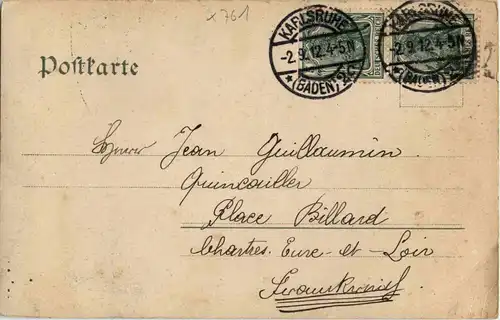 x 761
KARLSRUHE
-2.9.12.4-5N
*(BADEN)2
KARLSRUHE
-2.9.12.4-5N
*(BADEN)2
Postkarte
Herrn Jean Guillaumin
Quincailler
Place Billard
Chartres. Eure-et-Loir
Frankreich